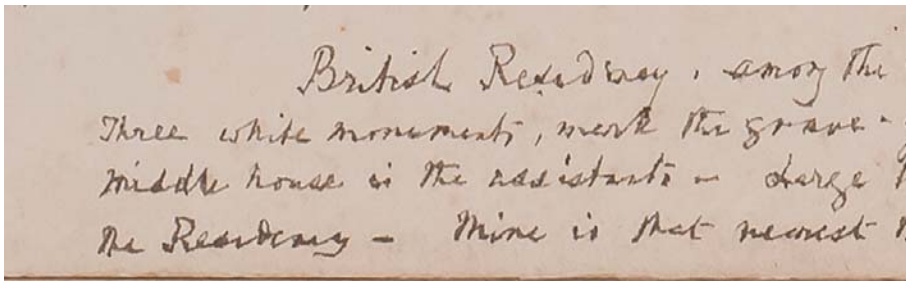 British Residency, among the
Three white monuments, mark the grave -
middle house is the assistants - Large
the Residency - Mine is that nearest